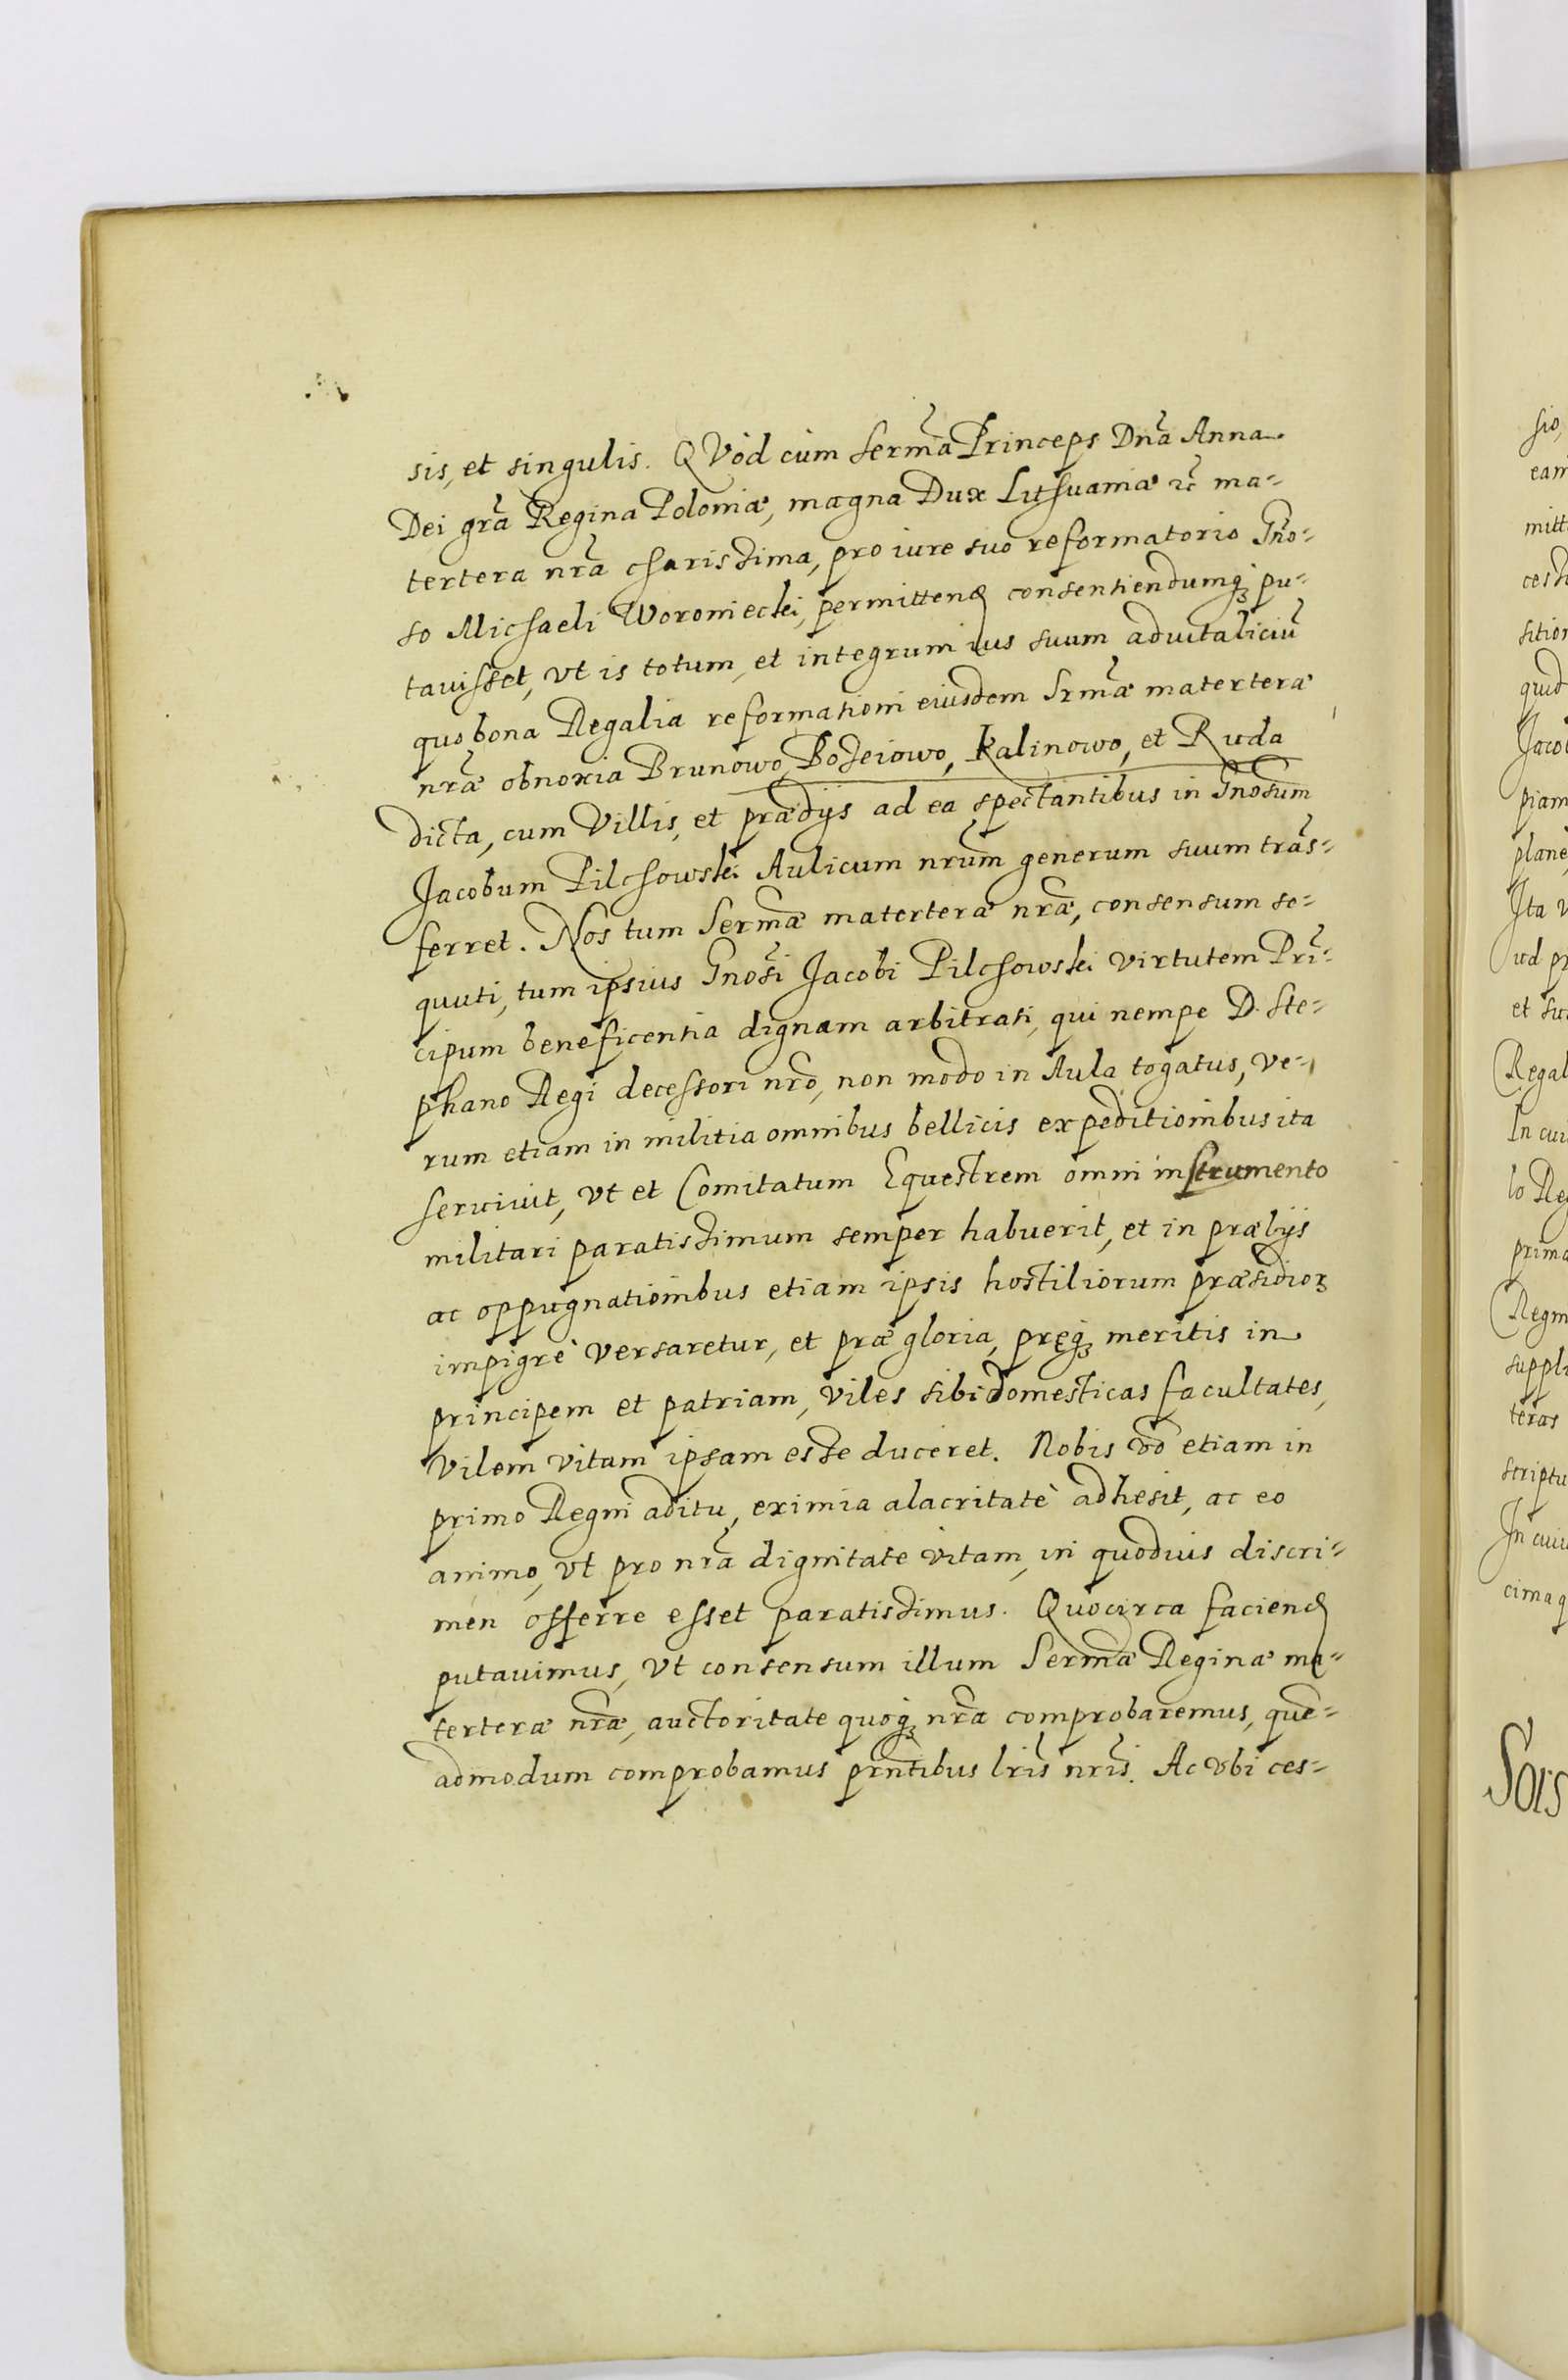 sis, et singulis. QVòd cùm Serm̃a Princeps Dnã Anna
Dei grã Regina Poloniæ, magna Dux Lithuaniæ &c̃ ma-
tertera nrã charissima, pro iure suo reformatorio Gño-
so Michaeli Woroniecki, permittend consentiendumq; pu-
tauisset, vt is totum, et integrum ius suum aduitaliciũ
quo bona Regalia reformationi eiusdem Srm̃æ materteræ
nrãe obnoxia Brunowo, Bodeiowo, Kalinowo, et Ruda
dicta, cum Villis, et prædijs ad ea spectantibus in Gnosum
Jacobum Pilchowski Aulicum nrũm generum suum trãs-
ferret. Nos tum Serm̃æ materteræ nrãe, consensum se-
quuti, tum ipsius Gnosĩ Jacobi Pilchowski virtutem Prĩ-
cipum beneficentia dignam arbitrati, qui nempe D. Ste-
phano Regi decessori nrõ, non modo in Aula togatus, ve-
rum etiam in militia omnibus bellicis expeditionibus ita
seruiuit, vt et Comitatum Equestrem omni instrumento
militari paratissimum semper habuerit, et in prælijs
ac oppugnationibus etiam ipsis hostiliorum præsidioꝝ
impigrè versaretur, et præ gloria, pręq; meritis in
principem et patriam, viles sibi domesticas facultates,
vilem vitam ipsam esse duceret. Nobis võ etiam in
primo Regni aditu, eximia alacritatè adhesit, ac eo
animo, vt pro nrã dignitate vitam, in quoduis discri-
men offerre esset paratissimus. Quocirca faciend
putauimus, vt consensum illum Serm̃æ Reginæ ma-
terteræ nrãe, auctoritate quoq; nrã comprobaremus, quẽ-
admodum comprobamus prñtibus lrĩs nrĩs. Ac vbi ces-
sio,
eam
mitt
cest
sition
quid
Jacob
piam
planè
Ita v
vd pr
et su
Regal
In cui
lo Reg
prima
Regni
suppli
teras
scriptu
In cuiu
cima q